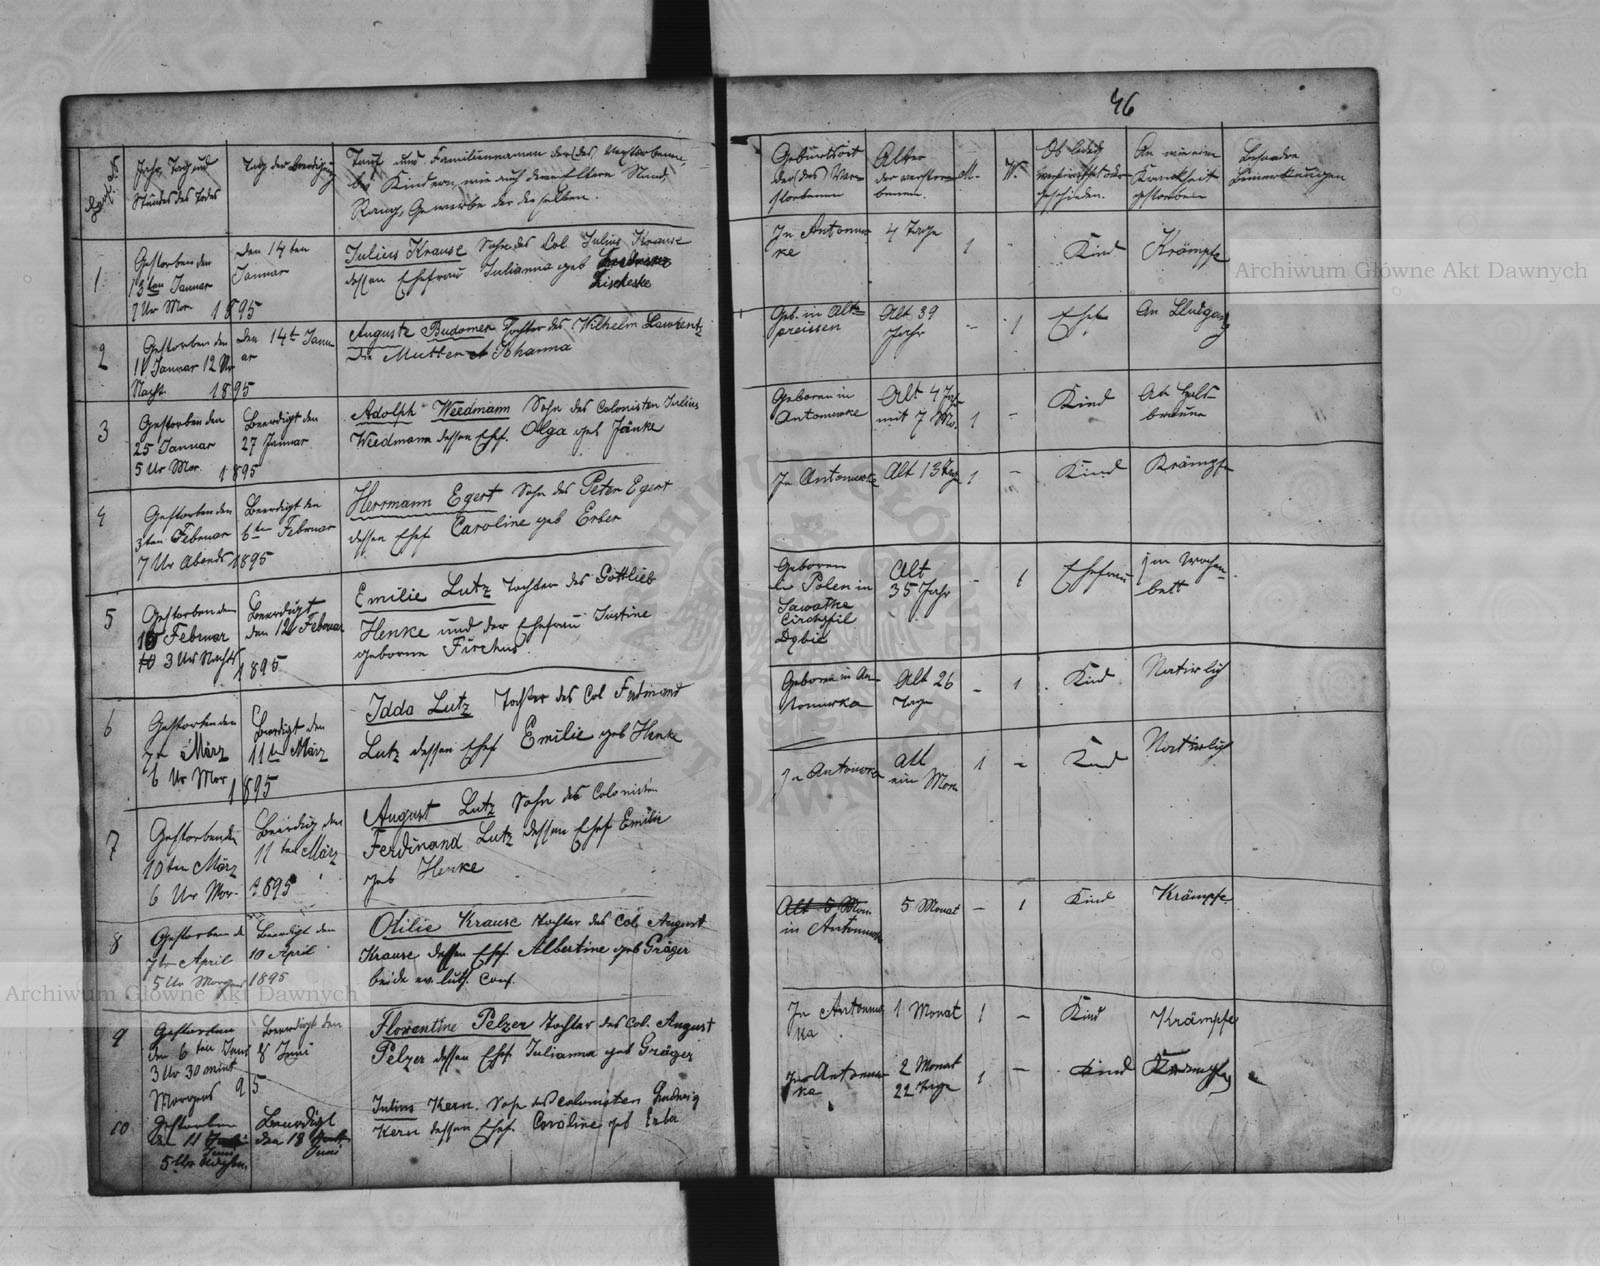 46
Lauf. №
Jahr, Tag und
Stunde des Todes
Tag der Beerdigung
Tauf und Familiennamen der (des) Verstorbenen,
bei Kindern, wie auch deren Eltern Stand,
Rang, Gewerbe der dieselben.
Geburtsort
der (des) Ver-
storbenen
Alter
der verstor-
benen.
M.
W.
Ob ledig
verheirathet oder
geschieden.
An wie eine
Krankheit
gestorben
Besondere
Bemerkungen
1
Gestorben den
13ten Januar
7 Ur Mor. 1895
den 14ten
Januar
Julius Krause Sohn des Col Julius Krause
dessen Ehefrau Julianna geb
Lischeske
In Antonuw
ke
4 Tage
1
-
Kind
Krämpfe
2
Gestorben den
11 Januar 12 Ur
Nacht. 1895
den 14ten Janu
ar
Auguste Budomer Tochter des Wilhelm Lawrentz
die Mutter Johanna
Geb. in Alt-
preissen
Alt 39
Jahr
-
1
Ehe.
An Blutgang
3
Gestorben den
25 Januar
5 Ur Mor. 1895
Beerdigt den
27 Januar
Adolph Weedmann Sohn des Colonisten Julius
Weedmann dessen Ehf. Olga geb Jänke
Geboren in
Antonuwke
Alt 4 Jar
mit 7 Mo.
1
-
Kind
An Hals-
braune
4
Gestorben den
3ten Februar
7 Ur Abends 1895
Beerdigt den
6ten Februar
Herrmann Egert Sohn des Peter Egert
dessen Ehef Caroline geb Erber
In Antonuwke
Alt 13 Tage
1
-
Kind
Krämpfe
5
Gestorben den
10 Februar
3 Ur Nachts 1895
Beerdigt
den 12 Februar
Emilie Lutz tochter des Gottlieb
Henke und der Ehefrau Justine
geborne Firchus
Geboren
in Polen in
Sawatke
Circhspil
Dąbie
Alt
35 Jahr
-
1
Ehefrau
im Wochen-
bett
6
Gestorben den
7te März
6 Ur Mor 1895
Beerdigt den
11te März
Idda Lutz Tochter des Col Ferdinand
Lutz dessen Ehef Emilie geb Henke
Geboren in An-
tonuwka
Alt 26
Tage
-
1
Kind
Natirlig
7
Gestorben den
10ten März
6 Ur Mor. 1895
Beerdig den
11ten März
August Lutz Sohn des Colonisten
Ferdinand Lutz dessen Ehef Emilie
geb Henke
In Antonuwka
Alt
ein Mon.
1
-
Kind
Natirlig
8
Gestorben de
7te April
5 Ur Morgens 1895
Beerdigt den
10 April
Otilie Krause tochter des Col August
Krause dessen Ehef. Albertine geb Gräger
beide ev. luth. Conf.
Alt 5 Mon.
in Antonuwk
5 Monat
-
1
Kind
Krämpfe
9
Gestorben
den 6ten Juni
3 Ur 30 minut
Morgens 95
Beerdigt den
8 Juni
Florentine Pelzer tochter des Col. August
Pelzer dessen Ehef. Julianna geb Gräger
In Antonuw
ka
1 Monat
1
-
Kind
Krämpfe
10
Gestorben
den 11
Juni
Beerdigt
den 18
Juni
Julius Kern. Sohn des colonisten Ludwig
Kern dessen Ehef. Caroline geb Erber
Antonuw
ke
2 Monat
22 Tage
1
-
Kind
Krämpfe
Archiwum Główne Akt Dawnych
Archiwum Główne Akt Dawnych